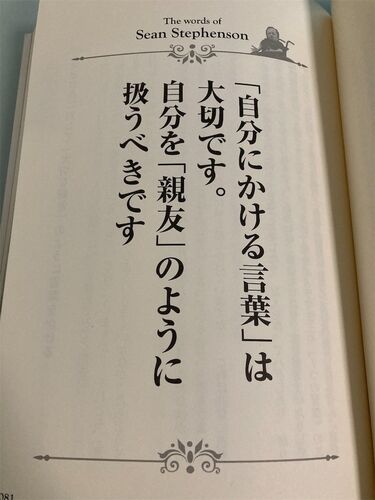 The words of
Sean Stephenson
「自分にかける言葉」は
大切です。
自分を「親友」のように
扱うべきです
081